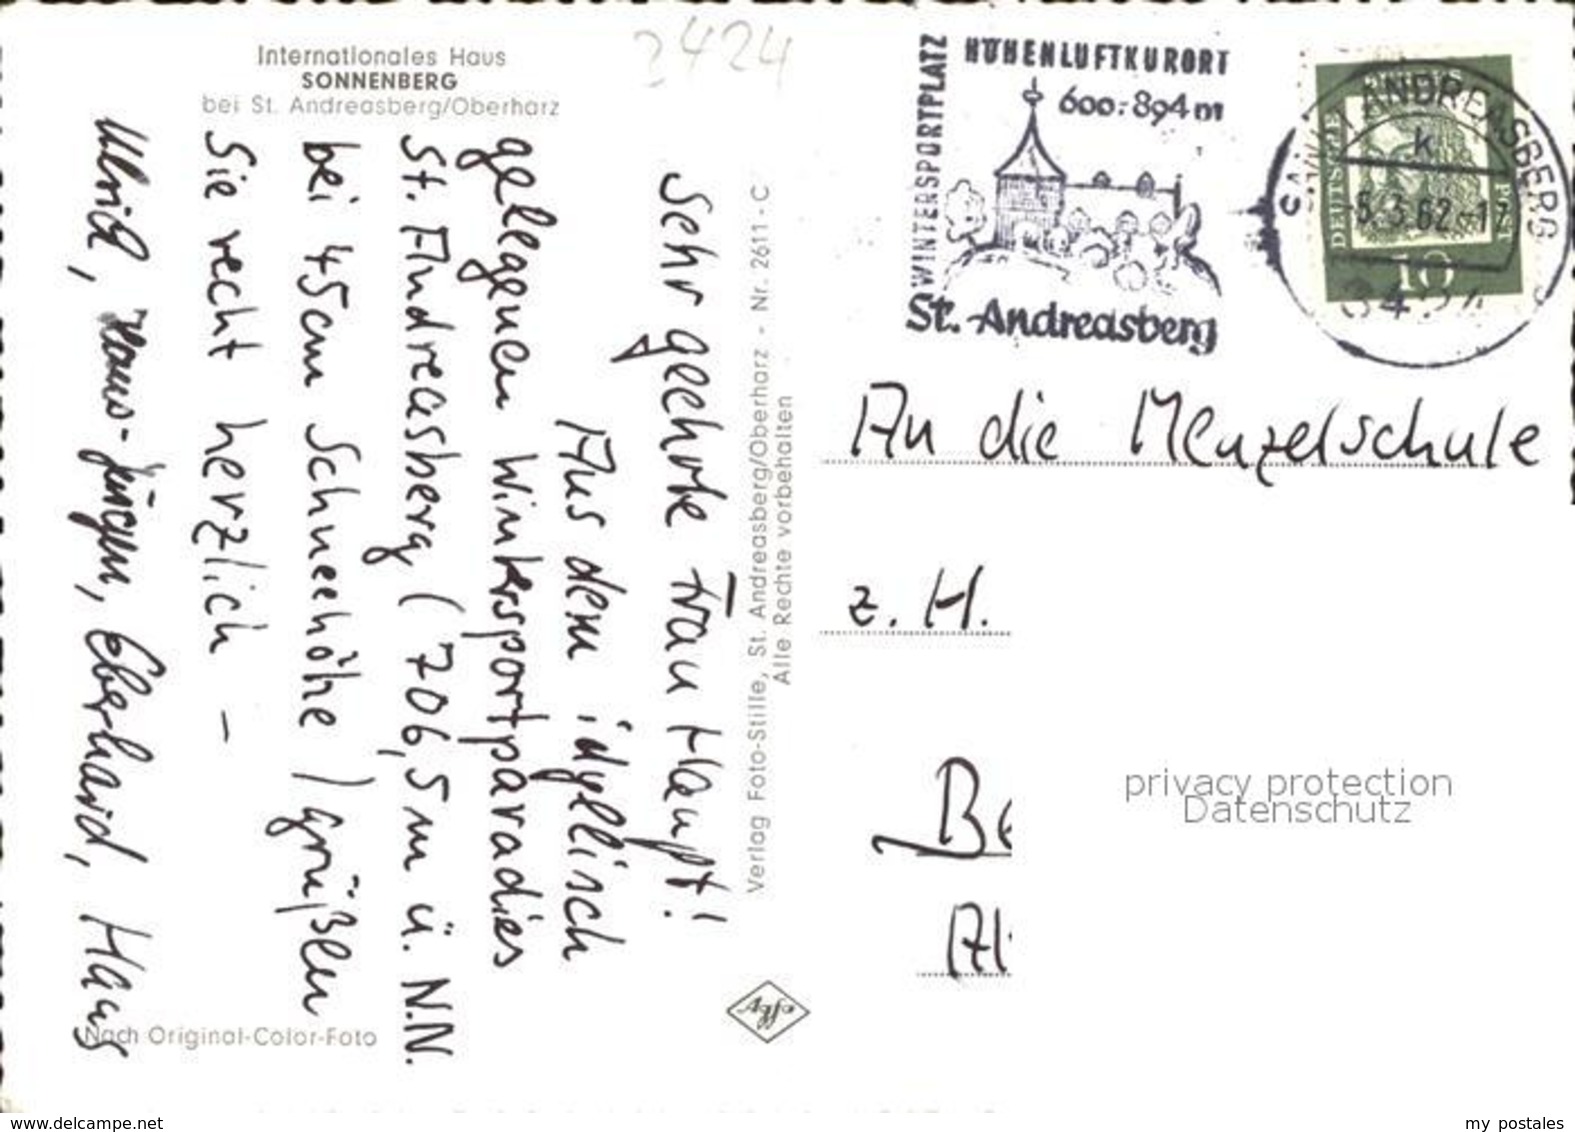 Internationales Haus
SONNENBERG
bei St. Andreasberg/Oberharz
2424
Sehr geehrte Frau Haupt!
Aus dem idyllisch
gelegenen Wintersportparadies
St. Andreasberg (706,5 m ü. N.N.
bei 45cm Schneehöhe) grüßen
Sie recht herzlich –
Ulrich, Hans-Jürgen, Eberhard, Hans
Nach Original-Color-Foto
Verlag Foto-Stille, St. Andreasberg/Oberharz - Nr. 2611 - C
Alle Rechte vorbehalten
Agfa
WINTERSPORTPLATZ
HÖHENLUFTKURORT
600-894m
St. Andreasberg
SANKT ANDREASBERG
k
-5.3.62-17
DEUTSCHE
10
An die Menzelschule
z. H.
privacy protection
Datenschutz
www.delcampe.net
my postales